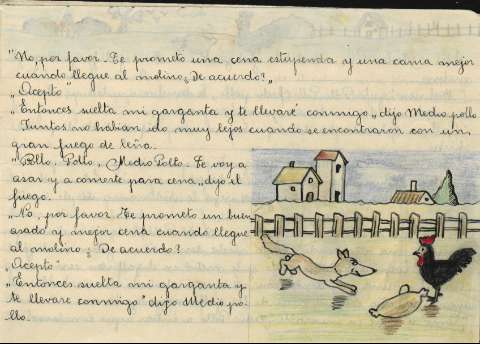 "No, por favor. Te prometo una cena estupenda y una cama mejor
cuando llegue al molino, De acuerdo?"
"Acepto
"Entonces suelta mi garganta y te llevaré conmigo", dijo Medio pollo.
Juntos no habían ido muy lejos cuando se encontraron con un
gran fuego de leña.
"Pollo, Pollo, Medio Pollo. Te voy a
asar y a comerte para cena", dijo el
fuego.
"No, por favor. Te prometo un buen
asado y mejor cena cuando llegue
al molino ¿ De acuerdo!
"Acepto
"Entonces suelta mi garganta y
te llevare conmigo" dijo Medio po-
llo.